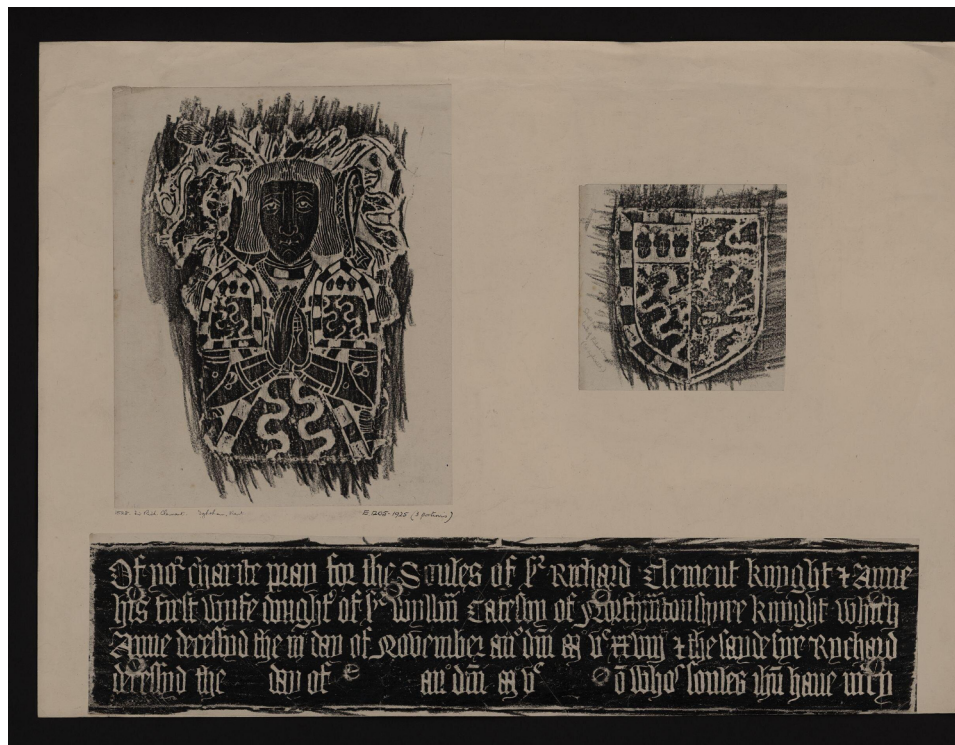 1528. Sir Rich. Clement. Ightham, Kent.
E.1205-1925 (3 portions)
Of yoʳ charite pray for the Soules of sʳ Richard Clement knyght & Anne
his first wyfe doughtʳ of sʳ Willm̄ Catesby of Northm̄tonshyre knyght which
Anne decessyd the iij day of November anº dm̄ mº vᶜ xxviij & the sayde syre Rychard
decessyd the day of anº dm̄ mº vᶜ ō whoˢ soules ihū have mºcy